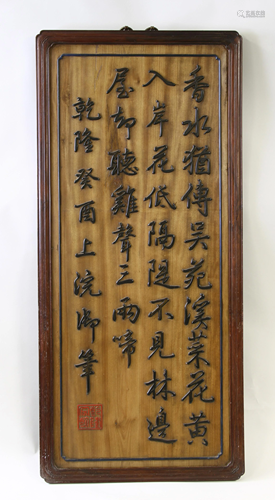 香水猶傳吳苑溪菜花黃
入岸花低隔隄不見林邊
屋却聽雞聲三兩啼
乾隆癸酉上浣御筆